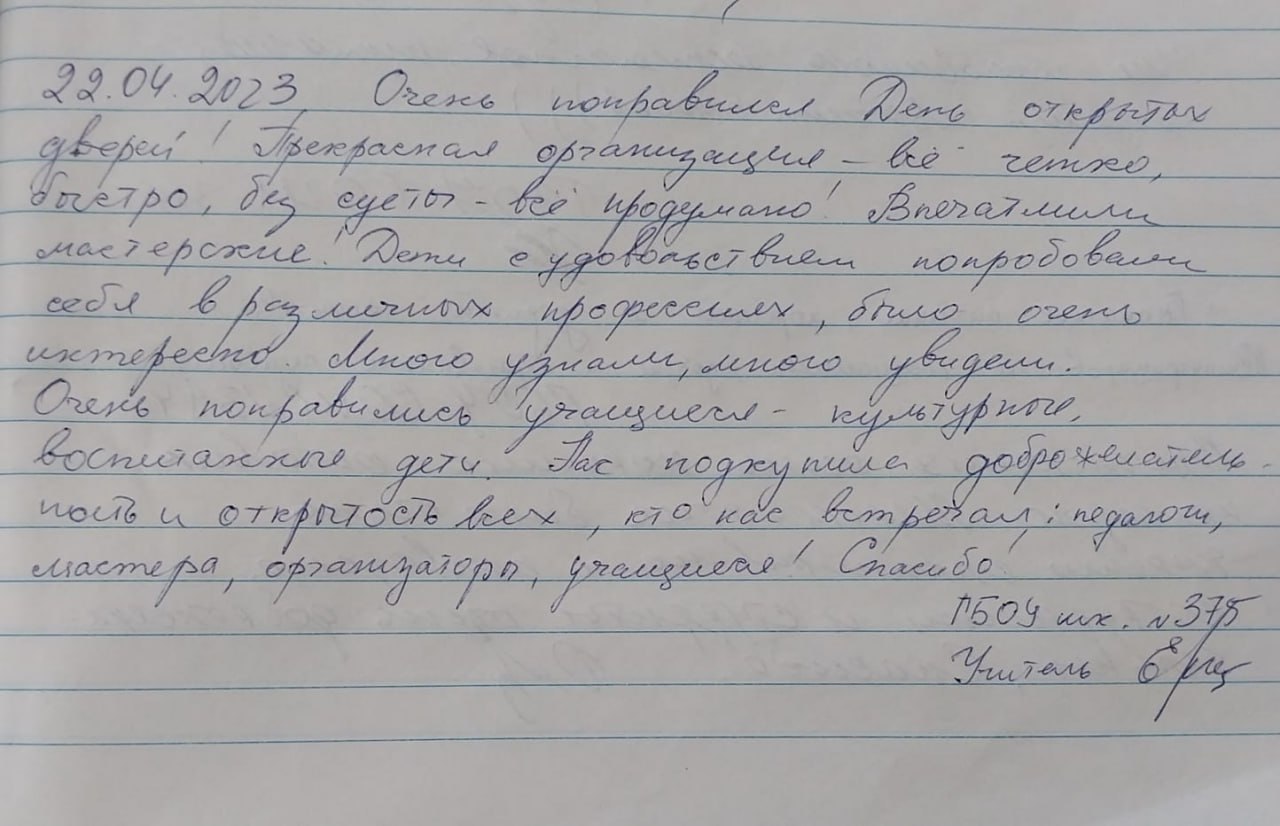 22.04.2023 Очень понравился День открытых
дверей! Прекрасная организация – всё четко,
быстро, без суеты – всё продумано! Впечатлили
мастерские! Дети с удовольствием попробовали
себя в различных профессиях, было очень
интересно. Много узнали, много увидели.
Очень понравились учащиеся – культурные,
воспитанные дети. Нас подкупила доброжелатель-
ность и открытость всех, кто нас встречал: педагоги,
мастера, организаторы, учащиеся! Спасибо!
ГБОУ шк. №375
Учитель